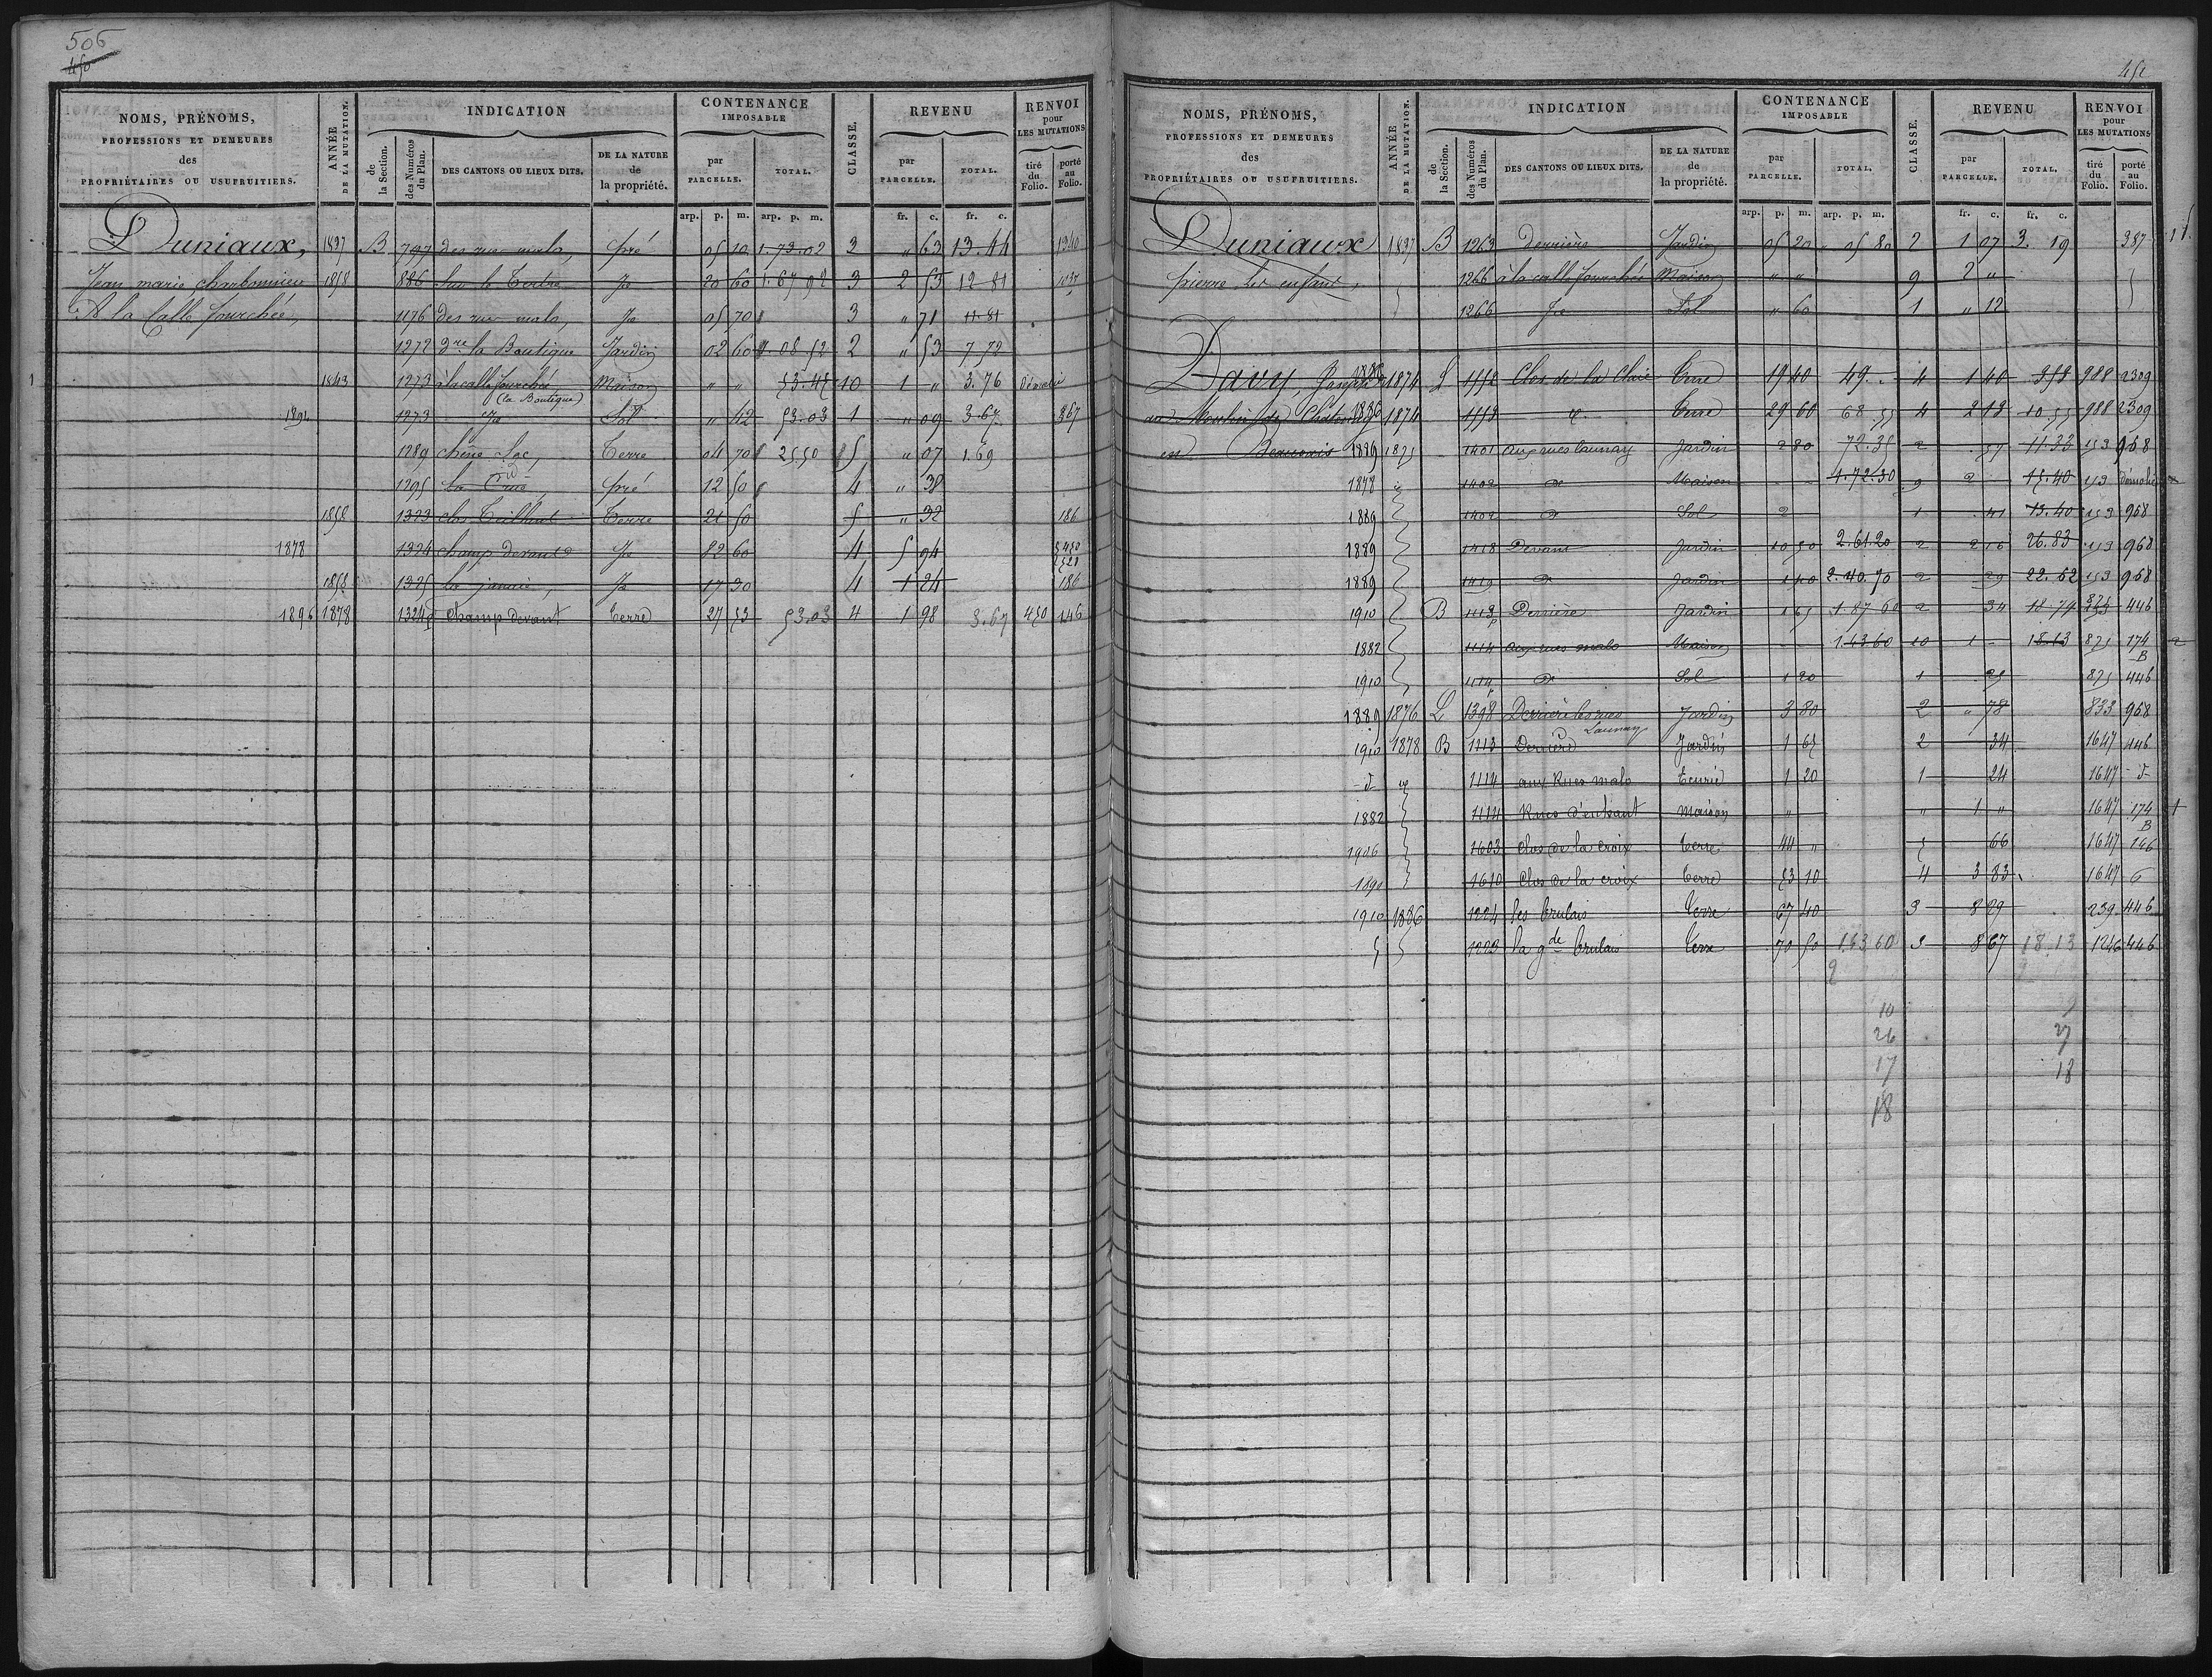 506
450
NOMS, PRÉNOMS,
PROFESSIONS ET DEMEURES
des
PROPRIÉTAIRES OU USUFRUITIERS.
ANNÉE
DE LA MUTATION.
INDICATION
de
la Section.
des Numéros
du Plan.
DES CANTONS OU LIEUX DITS.
DE LA NATURE
de
la propriété.
CONTENANCE
IMPOSABLE
par
PARCELLE.
TOTAL.
CLASSE.
REVENU
par
PARCELLE.
TOTAL.
RENVOI
pour
LES MUTATIONS
tiré
du
Folio.
porté
au
Folio.
arp. p. m. arp. p. m. fr. c. fr. c.
Duniaux, 1837 B 797 des rues malo, pré 05 10 1.73.02 3 " 63 13.44 1240
Jean marie charbonnier 1858 886 Sur le Tertre Jd 20 60 1.67 92 3 2 53 12 81
A la Calle fourchée, 1176 des rues malo, Jd 05 70 3 " 71 11 81
1272 dre la Boutique Jardin 02 60 08.52 2 " 53 7 72
1 1843 1273 à la calle fourchée Maison " " 53.45 10 1 " 3.76 Démoli
(la Boutique)
1891 1273 Jd Sol " 42 53.03 1 " 09 3.67 367
1289 chêne Loc, Terre 04 70 25 50 5 " 07 1.69
1295 La Crue pré 12 50 4 " 38
1858 1323 clos Teilhul Terre 21 50 5 " 32 186
1878 1324 champ devant Jd 82 60 4 5 94 450
1858 1325 la janaie, Jd 17 30 4 1 24 186
1896 1878 1324p Champ devant Terre 27 53 53.03 4 1 98 3.67 450 146
451
NOMS, PRÉNOMS,
PROFESSIONS ET DEMEURES
des
PROPRIÉTAIRES OU USUFRUITIERS.
ANNÉE
DE LA MUTATION.
INDICATION
de
la Section.
des Numéros
du Plan.
DES CANTONS OU LIEUX DITS.
DE LA NATURE
de
la propriété.
CONTENANCE
IMPOSABLE
par
PARCELLE.
TOTAL.
CLASSE.
REVENU
par
PARCELLE.
TOTAL.
RENVOI
pour
LES MUTATIONS
tiré
du
Folio.
porté
au
Folio.
arp. p. m. arp. p. m. fr. c. fr. c.
Duniaux 1837 B 1263 derrière Jardin 05 20 " 05 80 2 1 07 3. 19 387
pierre, les enfants, 1266 à la calle fourchée Maison " " 9 2 "
1266 Jd Sol " 60 1 " 12
Davy, Joseph 1886 1874 L 1552 Clos de la Claie Terre 19 40 49. 4 1 40 358 988 2309
au Moulin du 1886 1874 1553 d° Terre 29 60 68.55 4 2 13 10.55 988 2309
en Beauvais 1889 1875 1401 aux rues Launay Jardin 2 80 72.35 2 57 11.33 153 968
1878 1402 d° Maison - - 1.72.30 9 2 15.40 153 démolie
1889 1402 d° Sol 2 1 41 13.40 153 968
1889 1418 Devant Jardin 10 50 2.61.20 2 2 16 26.83 153 968
1889 1419 d° Jardin 1 40 2.40.70 2 29 22.62 153 968
1910 B 1113p Derrière Jardin 1 65 1.87 60 2 34 18 74 446
1882 1114 aux rues malo Maison - - 1.43 60 10 1 - 18.13 825 174 2
B
1910 1114p d° Sol 1 20 1 25 825 446
1889 1876 L 1398 Derrière les rues Jardin 3 80 2 " 78 833 968
Launay
1910 1878 B 1113 Derrière Jardin 1 65 2 34 1647 446
d° d° 1114 aux Rues malo Ecurie 1 20 1 24 1647 d°
1882 1114 Rues maison " " 1 " 1647 174 1
B
1906 1603 Clos de la croix terre 44 " 5 66 1647 146
1891 1610 Clos de la croix terre 53 10 4 3 83 1647 6
1910 1886 1224 les brulais terre 67 40 3 8 29 239 446
1223 la gde brulais terre 70 50 1.43 60 3 8 67 18.13 1246 446
9 9
10 9
26 27
17 18
18